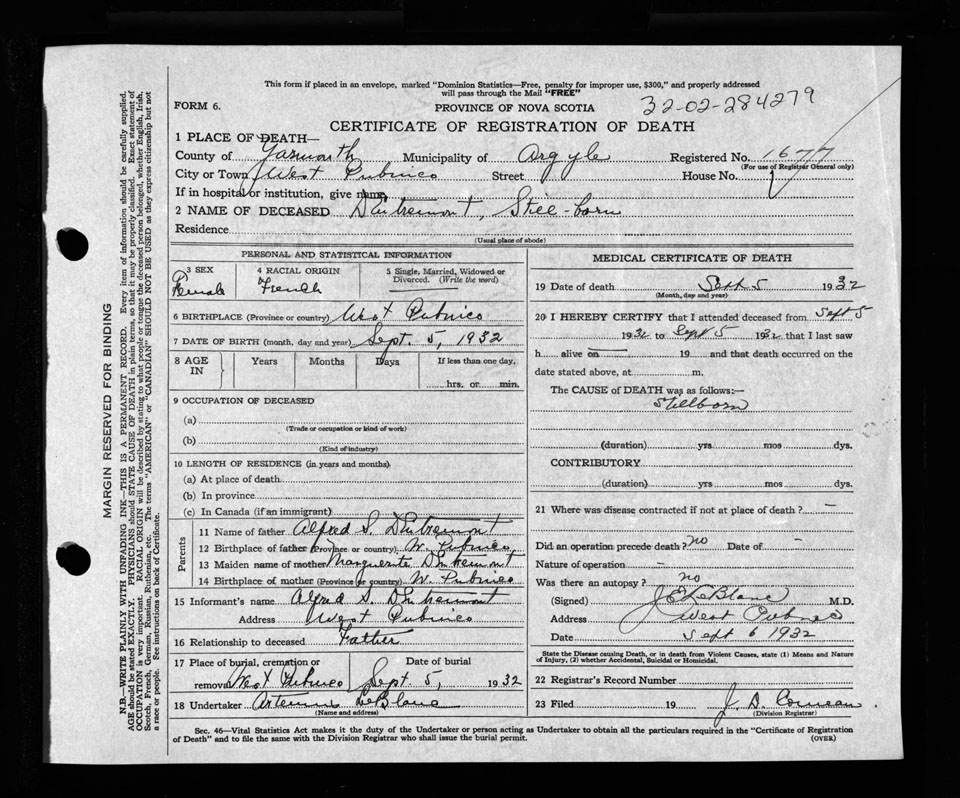 This form if placed in an envelope, marked "Dominion Statistics—Free, penalty for improper use, $300," and properly addressed
will pass through the Mail "FREE"
FORM 6.
PROVINCE OF NOVA SCOTIA
32-02-284279
CERTIFICATE OF REGISTRATION OF DEATH
1 PLACE OF DEATH—
County of Yarmouth Municipality of Argyle Registered No. 1677
(For use of Registrar General only)
City or Town West Pubnico Street House No.
If in hospital or institution, give name
2 NAME OF DECEASED D'Entremont, Still-born
Residence
(Usual place of abode)
PERSONAL AND STATISTICAL INFORMATION
3 SEX
Female
4 RACIAL ORIGIN
French
5 Single, Married, Widowed or
Divorced. (Write the word)
6 BIRTHPLACE (Province or country) West Pubnico
7 DATE OF BIRTH (month, day and year) Sept. 5, 1932
8 AGE
IN
Years Months Days If less than one day,
hrs. or min.
9 OCCUPATION OF DECEASED
(a)
(Trade or occupation or kind of work)
(b)
(Kind of industry)
10 LENGTH OF RESIDENCE (in years and months)
(a) At place of death
(b) In province
(c) In Canada (if an immigrant)
Parents
11 Name of father Alfred S. D'Entremont
12 Birthplace of father (Province or country) W. Pubnico
13 Maiden name of mother Marguerite D'Entremont
14 Birthplace of mother (Province or country) W. Pubnico
15 Informant's name Alfred S. D'Entremont
Address West Pubnico
16 Relationship to deceased Father
17 Place of burial, cremation or
removal West Pubnico
Date of burial
Sept. 5, 1932
18 Undertaker LeBlanc
(Name and address)
MEDICAL CERTIFICATE OF DEATH
19 Date of death Sept 5 1932
(Month, day and year)
20 I HEREBY CERTIFY that I attended deceased from Sept 5
1932 to Sept 5 1932 that I last saw
h alive on 19 and that death occurred on the
date stated above, at m.
The CAUSE OF DEATH was as follows:—
Stillborn
(duration) yrs mos dys.
CONTRIBUTORY
(duration) yrs mos dys.
21 Where was disease contracted if not at place of death? —
Did an operation precede death? no Date of —
Nature of operation —
Was there an autopsy? no
(Signed) LeBlanc M.D.
Address West Pubnico
Date Sept 6 1932
State the Disease causing Death, or in death from Violent Causes, state (1) Means and Nature
of Injury, (2) whether Accidental, Suicidal or Homicidal.
22 Registrar's Record Number
23 Filed 19 J. D. Comeau
(Division Registrar)
Sec. 46—Vital Statistics Act makes it the duty of the Undertaker or person acting as Undertaker to obtain all the particulars required in the "Certificate of Registration
of Death" and to file the same with the Division Registrar who shall issue the burial permit.
(OVER)
MARGIN RESERVED FOR BINDING
N.B.—WRITE PLAINLY WITH UNFADING INK—THIS IS A PERMANENT RECORD. Every item of information should be carefully supplied.
AGE should be stated EXACTLY. PHYSICIANS should STATE CAUSE OF DEATH in plain terms, so that it may be properly classified. Exact statement of
OCCUPATION is very important. RACIAL ORIGIN will be described by stating to what people or tongue the deceased person belonged, whether English, Irish,
Scotch, French, German, Russian, Ruthenian, etc. The terms "AMERICAN" or "CANADIAN" SHOULD NOT BE USED as they express citizenship but not
a race or people. See instructions on back of Certificate.